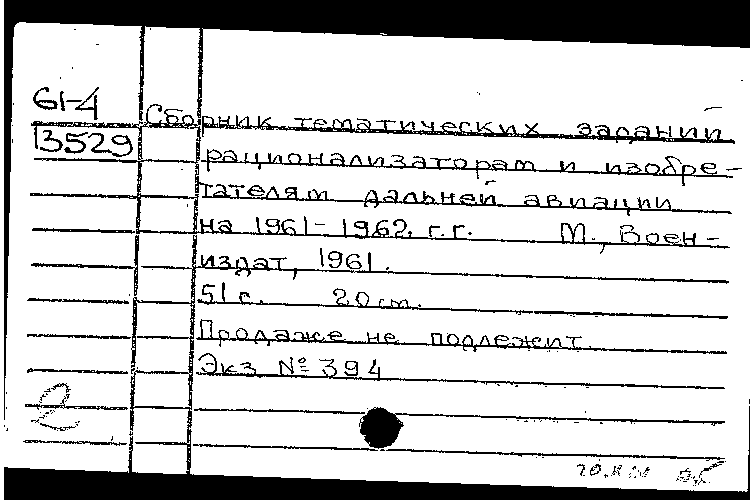 61-4
13529
Сборник тематических заданий
рационализаторам и изобре-
тателям дальней авиации
на 1961-1962. г.г. М., Воен-
издат, 1961.
51 с. 20 см.
Продаже не подлежит.
Экз № 394
2